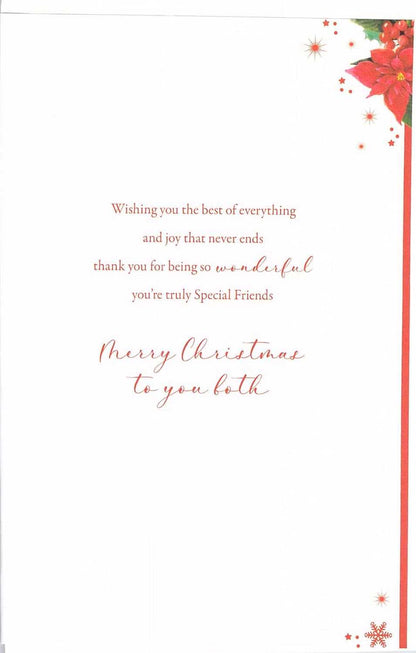 Wishing you the best of everything
and joy that never ends
thank you for being so wonderful
you're truly Special Friends
Merry Christmas
to you both